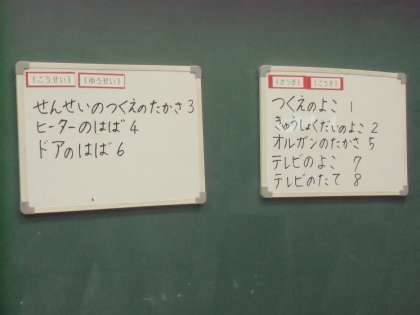 《こうせい》 《ゆうせい》
せんせいのつくえのたかさ 3
ヒーターのはば 4
ドアのはば 6
つくえのよこ 1
きゅうしょくだいのよこ 2
オルガンのたかさ 5
テレビのよこ 7
テレビのたて 8